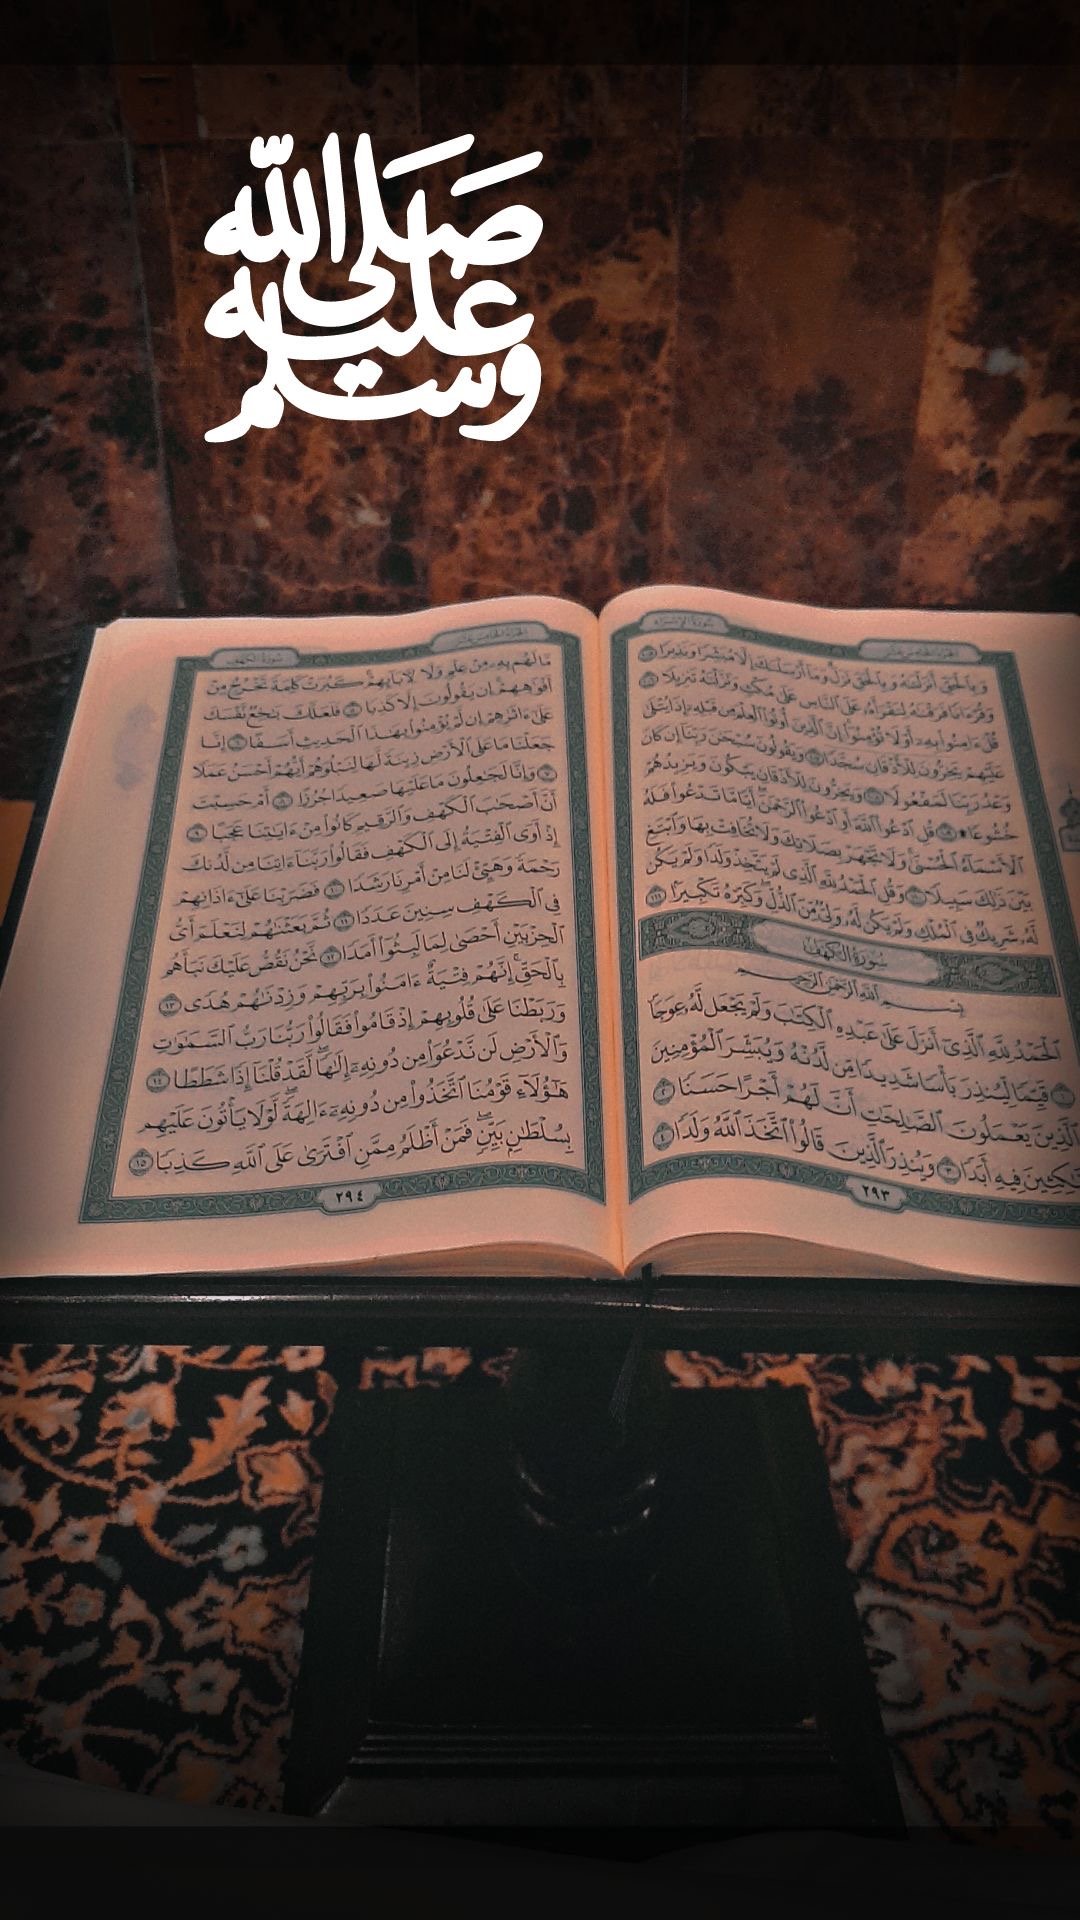 صلى الله
عليه
وسلم
سورة الإسراء
الجزء الخامس عشر
وَبِٱلْحَقِّ أَنزَلْنَٰهُ وَبِٱلْحَقِّ نَزَلَ وَمَآ أَرْسَلْنَٰكَ إِلَّا مُبَشِّرًا وَنَذِيرًا ١٠٥
وَقُرْءَانًا فَرَقْنَٰهُ لِتَقْرَأَهُۥ عَلَى ٱلنَّاسِ عَلَىٰ مُكْثٍ وَنَزَّلْنَٰهُ تَنزِيلًا ١٠٦
قُلْ ءَامِنُوا۟ بِهِۦٓ أَوْ لَا تُؤْمِنُوٓا۟ إِنَّ ٱلَّذِينَ أُوتُوا۟ ٱلْعِلْمَ مِن قَبْلِهِۦٓ إِذَا يُتْلَىٰ
عَلَيْهِمْ يَخِرُّونَ لِلْأَذْقَانِ سُجَّدًا ١٠٧ وَيَقُولُونَ سُبْحَٰنَ رَبِّنَآ إِن كَانَ
وَعْدُ رَبِّنَا لَمَفْعُولًا ١٠٨ وَيَخِرُّونَ لِلْأَذْقَانِ يَبْكُونَ وَيَزِيدُهُمْ
خُشُوعًا ۩ ١٠٩ قُلِ ٱدْعُوا۟ ٱللَّهَ أَوِ ٱدْعُوا۟ ٱلرَّحْمَٰنَ ۖ أَيًّا مَّا تَدْعُوا۟ فَلَهُ
ٱلْأَسْمَآءُ ٱلْحُسْنَىٰ ۚ وَلَا تَجْهَرْ بِصَلَاتِكَ وَلَا تُخَافِتْ بِهَا وَٱبْتَغِ
بَيْنَ ذَٰلِكَ سَبِيلًا ١١٠ وَقُلِ ٱلْحَمْدُ لِلَّهِ ٱلَّذِى لَمْ يَتَّخِذْ وَلَدًا وَلَمْ يَكُن
لَّهُۥ شَرِيكٌ فِى ٱلْمُلْكِ وَلَمْ يَكُن لَّهُۥ وَلِىٌّ مِّنَ ٱلذُّلِّ ۖ وَكَبِّرْهُ تَكْبِيرًۢا ١١١
سُورَةُ الكَهْفِ
بِسْمِ ٱللَّهِ ٱلرَّحْمَٰنِ ٱلرَّحِيمِ
ٱلْحَمْدُ لِلَّهِ ٱلَّذِىٓ أَنزَلَ عَلَىٰ عَبْدِهِ ٱلْكِتَٰبَ وَلَمْ يَجْعَل لَّهُۥ عِوَجَا
١ قَيِّمًا لِّيُنذِرَ بَأْسًا شَدِيدًا مِّن لَّدُنْهُ وَيُبَشِّرَ ٱلْمُؤْمِنِينَ
ٱلَّذِينَ يَعْمَلُونَ ٱلصَّٰلِحَٰتِ أَنَّ لَهُمْ أَجْرًا حَسَنًا ٢
مَّٰكِثِينَ فِيهِ أَبَدًا ٣ وَيُنذِرَ ٱلَّذِينَ قَالُوا۟ ٱتَّخَذَ ٱللَّهُ وَلَدًا ٤
٢٩٣
الجزء الخامس عشر
سورة الكهف
مَّا لَهُم بِهِۦ مِنْ عِلْمٍ وَلَا لِءَابَآئِهِمْ ۚ كَبُرَتْ كَلِمَةً تَخْرُجُ مِنْ
أَفْوَٰهِهِمْ ۚ إِن يَقُولُونَ إِلَّا كَذِبًا ٥ فَلَعَلَّكَ بَٰخِعٌ نَّفْسَكَ
عَلَىٰٓ ءَاثَٰرِهِمْ إِن لَّمْ يُؤْمِنُوا۟ بِهَٰذَا ٱلْحَدِيثِ أَسَفًا ٦ إِنَّا
جَعَلْنَا مَا عَلَى ٱلْأَرْضِ زِينَةً لَّهَا لِنَبْلُوَهُمْ أَيُّهُمْ أَحْسَنُ عَمَلًا
٧ وَإِنَّا لَجَٰعِلُونَ مَا عَلَيْهَا صَعِيدًا جُرُزًا ٨ أَمْ حَسِبْتَ
أَنَّ أَصْحَٰبَ ٱلْكَهْفِ وَٱلرَّقِيمِ كَانُوا۟ مِنْ ءَايَٰتِنَا عَجَبًا ٩
إِذْ أَوَى ٱلْفِتْيَةُ إِلَى ٱلْكَهْفِ فَقَالُوا۟ رَبَّنَآ ءَاتِنَا مِن لَّدُنكَ
رَحْمَةً وَهَيِّئْ لَنَا مِنْ أَمْرِنَا رَشَدًا ١٠ فَضَرَبْنَا عَلَىٰٓ ءَاذَانِهِمْ
فِى ٱلْكَهْفِ سِنِينَ عَدَدًا ١١ ثُمَّ بَعَثْنَٰهُمْ لِنَعْلَمَ أَىُّ
ٱلْحِزْبَيْنِ أَحْصَىٰ لِمَا لَبِثُوٓا۟ أَمَدًا ١٢ نَّحْنُ نَقُصُّ عَلَيْكَ نَبَأَهُم
بِٱلْحَقِّ ۚ إِنَّهُمْ فِتْيَةٌ ءَامَنُوا۟ بِرَبِّهِمْ وَزِدْنَٰهُمْ هُدًى ١٣
وَرَبَطْنَا عَلَىٰ قُلُوبِهِمْ إِذْ قَامُوا۟ فَقَالُوا۟ رَبُّنَا رَبُّ ٱلسَّمَٰوَٰتِ
وَٱلْأَرْضِ لَن نَّدْعُوَا۟ مِن دُونِهِۦٓ إِلَٰهًا ۖ لَّقَدْ قُلْنَآ إِذًا شَطَطًا ١٤
هَٰٓؤُلَآءِ قَوْمُنَا ٱتَّخَذُوا۟ مِن دُونِهِۦٓ ءَالِهَةً ۖ لَّوْلَا يَأْتُونَ عَلَيْهِم
بِسُلْطَٰنٍۭ بَيِّنٍ ۖ فَمَنْ أَظْلَمُ مِمَّنِ ٱفْتَرَىٰ عَلَى ٱللَّهِ كَذِبًا ١٥
٢٩٤